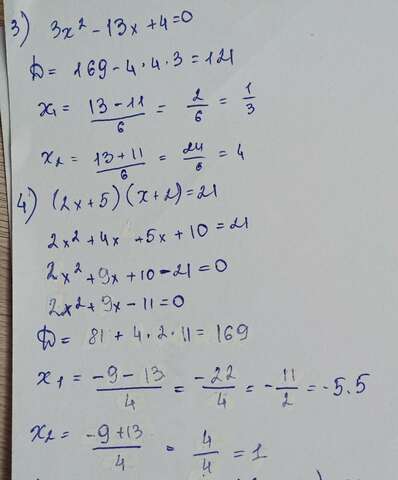 3) 3x² - 13x + 4 = 0
D = 169 - 4 · 4 · 3 = 121
x₁ = (13 - 11)/6 = 2/6 = 1/3
x₂ = (13 + 11)/6 = 24/6 = 4
4) (2x + 5)(x + 2) = 21
2x² + 4x + 5x + 10 = 21
2x² + 9x + 10 - 21 = 0
2x² + 9x - 11 = 0
D = 81 + 4 · 2 · 11 = 169
x₁ = (-9 - 13)/4 = -22/4 = -11/2 = -5.5
x₂ = (-9 + 13)/4 = 4/4 = 1